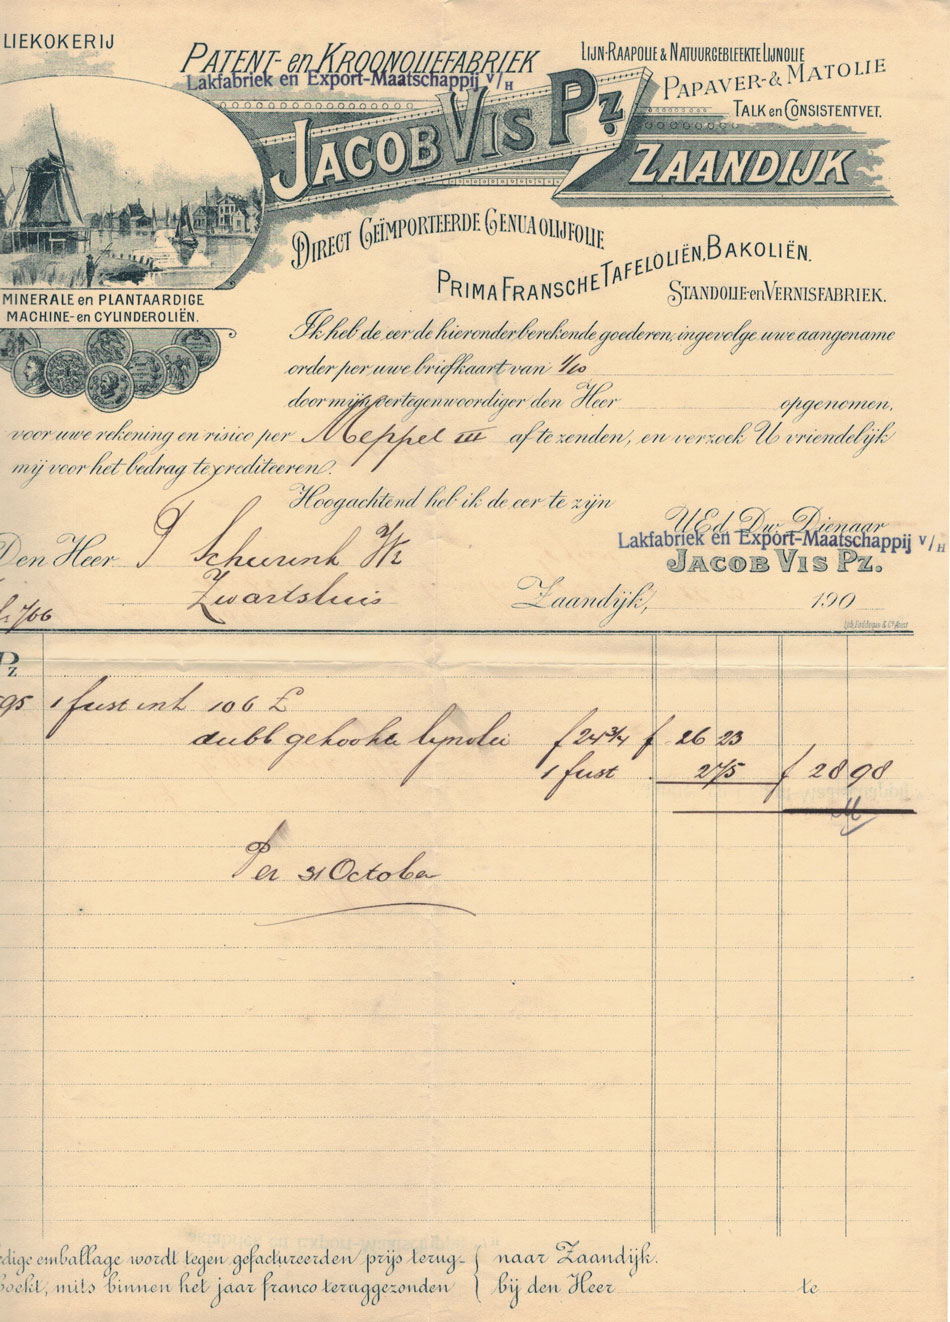 LIEKOKERIJ
PATENT- en KROONOLIEFABRIEK
Lakfabriek en Export-Maatschappij v/H
JACOB VIS Pz.
ZAANDIJK
LIJN-RAAPOLIE & NATUURGEBLEEKTE LIJNOLIE
PAPAVER- & MATOLIE
TALK en CONSISTENTVET.
DIRECT GEÏMPORTEERDE GENUA OLIJFOLIE
PRIMA FRANSCHE TAFELOLIËN, BAKOLIËN.
STANDOLIE- en VERNISFABRIEK.
MINERALE en PLANTAARDIGE
MACHINE- en CYLINDEROLIËN.
Ik heb de eer de hieronder berekende goederen, ingevolge uwe aangename
order per uwe briefkaart van 1/10
door mijn vertegenwoordiger den Heer opgenomen,
voor uwe rekening en risico per Meppel III af te zenden, en verzoek U vriendelijk
mij voor het bedrag te crediteeren.
Hoogachtend heb ik de eer te zijn
UEd. Dw. Dienaar
Lakfabriek en Export-Maatschappij v/H
JACOB VIS PZ.
Den Heer
Zwartsluis
Zaandijk, 190
Pz
95 1 fust inh 106 £
dubb gekookte lynolie f 24 3/4 f 26 23
1 fust 2 75 f 28 98
Per 31 October
edige emballage wordt tegen gefactureerden prijs terug-
boekt, mits binnen het jaar franco teruggezonden
naar Zaandijk.
bij den Heer te